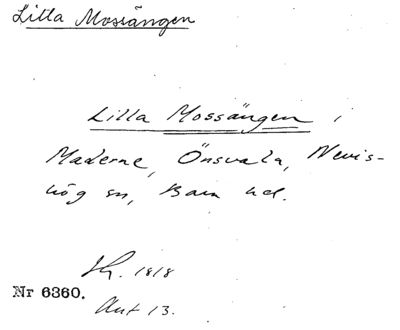 Lilla Mossängen
Lilla Mossängen i
Maderne, Önsvala, Nevis-
hög sn, Bara hd.
Sk. 1818
Nr 6360.
Akt 13.